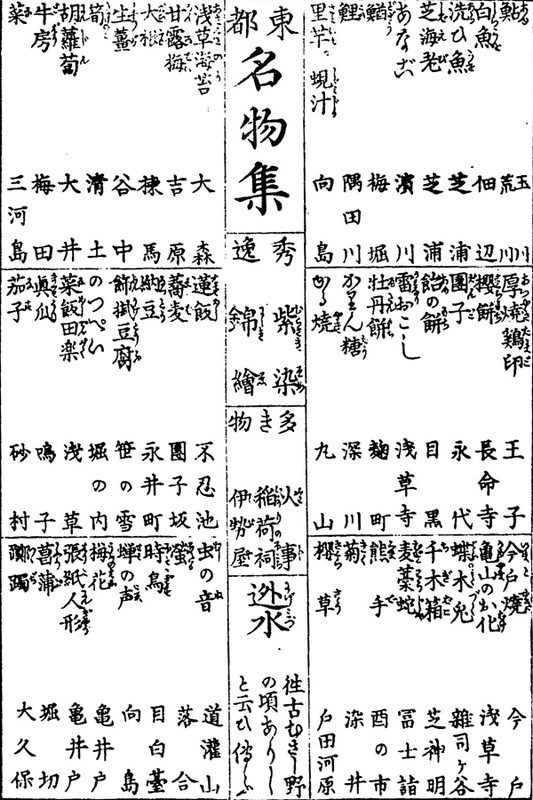 東都
名物集
鮎 玉川 荒川
白魚 佃辺
洗ひ魚 芝浦
芝海老 芝浦
あなご 濱川
鯔 梅堀
鯉 隅田川
里芋 蜆汁 向島
厚焼鶏卵 王子
櫻餅 長命寺
團子 永代
飴の餅 目黒
雷おこし 浅草寺
牡丹餅 麹町
かりん糖 深川
かる焼 丸山
今戸焼 今戸
亀山のお化 浅草寺
木兎 雑司ヶ谷
千木箱 芝神明
麦藁蛇 冨士詣
熊手 酉の市
菊 染井
櫻草 戸田河原
秀逸
紫染
錦繪
多き物
火事
稲荷の祠
伊勢屋
迯水
往古むさし野
の頃ありし
と云ひ傳ふ
浅草海苔 大森
甘露梅 吉原
大根 練馬
生薑 谷中
筍 清土
胡蘿蔔 大井
牛房 梅田
菜 三河島
蓮飯 不忍池
蕎麦 團子坂
納豆 永井町
餡掛豆腐 笹の雪
のつぺい 堀の内
菜飯田楽 浅草
真瓜 鳴子
茄子 砂村
虫の音 道灌山
螢 落合
時鳥 目白臺
蝉の声 向島
梅花 亀井戸
張紙人形 亀井戸
菖蒲 堀切
躑躅 大久保